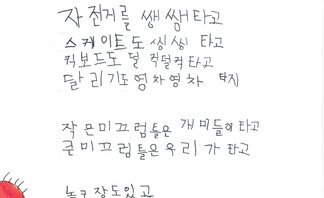 자전거를 쌩쌩타고
스케이트도 싱싱 타고
퀵보드도 덜컥덜컥타고
달리기도 영차영차 타지
작은미끄럼틀은 개미들이 타고
큰미끄럼틀은우리가 타고
농구장도있고